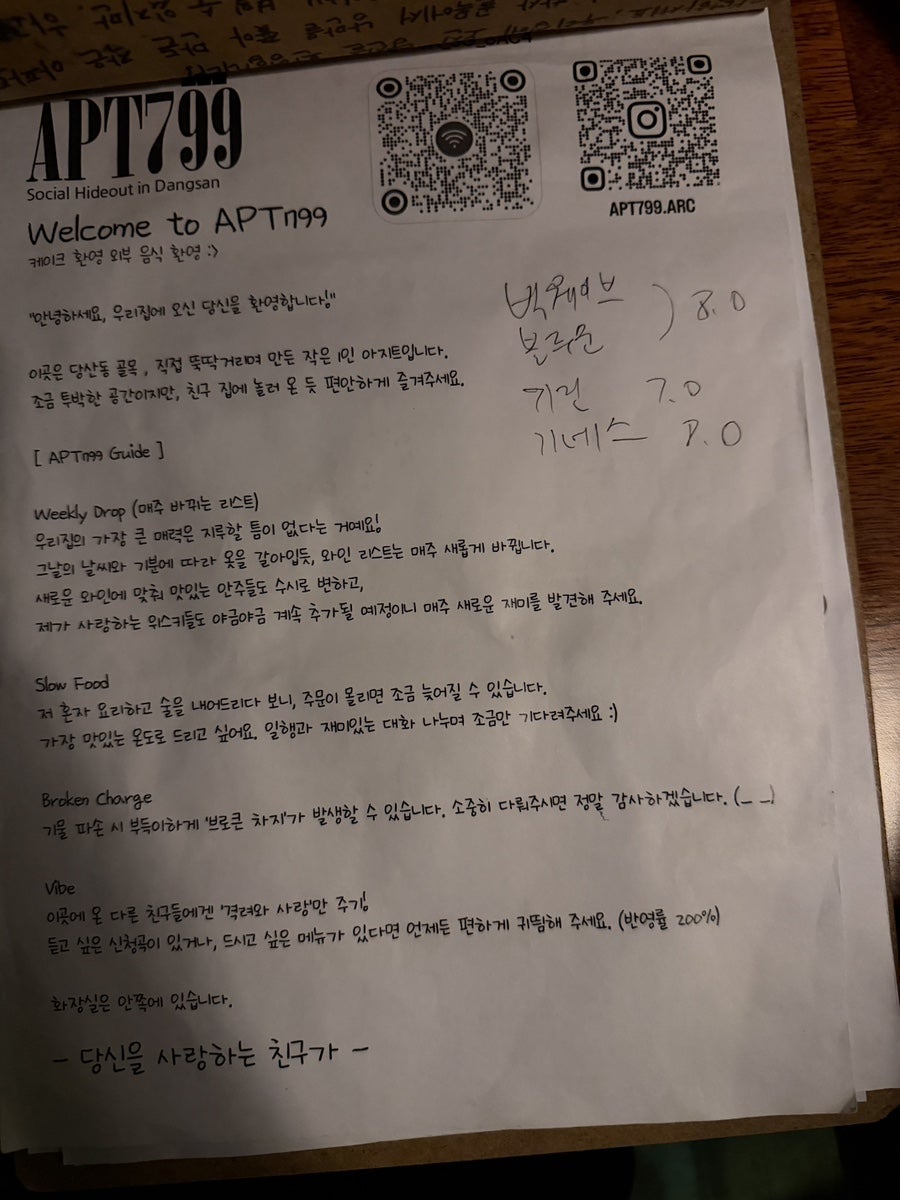 APT799
Social Hideout in Dangsan
APT799.ARC
Welcome to APT799
케이크 환영 외부 음식 환영 :>
"안녕하세요, 우리집에 오신 당신을 환영합니다!"
이곳은 당산동 골목, 직접 뚝딱거리며 만든 작은 1인 아지트입니다.
조금 투박한 공간이지만, 친구 집에 놀러 온 듯 편안하게 즐겨주세요.
빅웨이브
블루문
) 8.0
기린 7.0
기네스 8.0
[ APT799 Guide ]
Weekly Drop (매주 바뀌는 리스트)
우리집의 가장 큰 매력은 지루할 틈이 없다는 거예요!
그날의 날씨와 기분에 따라 옷을 갈아입듯, 와인 리스트는 매주 새롭게 바뀝니다.
새로운 와인에 맞춰 맛있는 안주들도 수시로 변하고,
제가 사랑하는 위스키들도 야금야금 계속 추가될 예정이니 매주 새로운 재미를 발견해 주세요.
Slow Food
저 혼자 요리하고 술을 내어드리다 보니, 주문이 몰리면 조금 늦어질 수 있습니다.
가장 맛있는 온도로 드리고 싶어요. 일행과 재미있는 대화 나누며 조금만 기다려주세요 :)
Broken Charge
기물 파손 시 부득이하게 '브로큰 차지'가 발생할 수 있습니다. 소중히 다뤄주시면 정말 감사하겠습니다. (_ _)
Vibe
이곳에 온 다른 친구들에겐 '격려와 사랑'만 주기!
듣고 싶은 신청곡이 있거나, 드시고 싶은 메뉴가 있다면 언제든 편하게 귀띔해 주세요. (반영률 200%)
화장실은 안쪽에 있습니다.
- 당신을 사랑하는 친구가 -